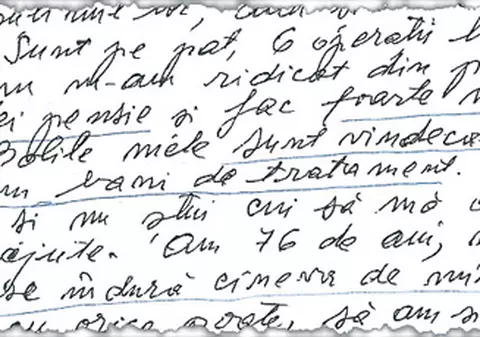 Sunt pe pat, 6 operatii
nu m-am ridicat din
ei pensie si fac foarte
Bolile mele sunt vindeca
bani de tratament.
si nu stiu cui să mă
ajute. Am 76 de ani,
se îndură cineva de
orice poate, să am